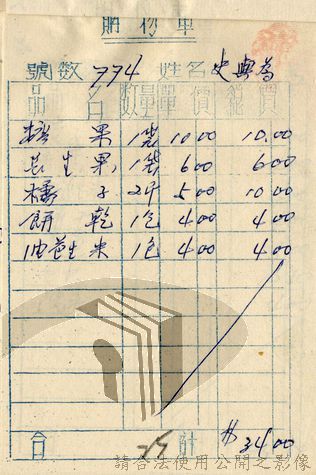 購物單
號數 774 姓名 史與為
品名 數量 單價 總價
糖果 1袋 10.00 10.00
花生果 1袋 6.00 6.00
橘子 2斤 5.00 10.00
餅乾 1包 4.00 4.00
油花生米 1包 4.00 4.00
合計 $34.00
請合法使用公開之影像